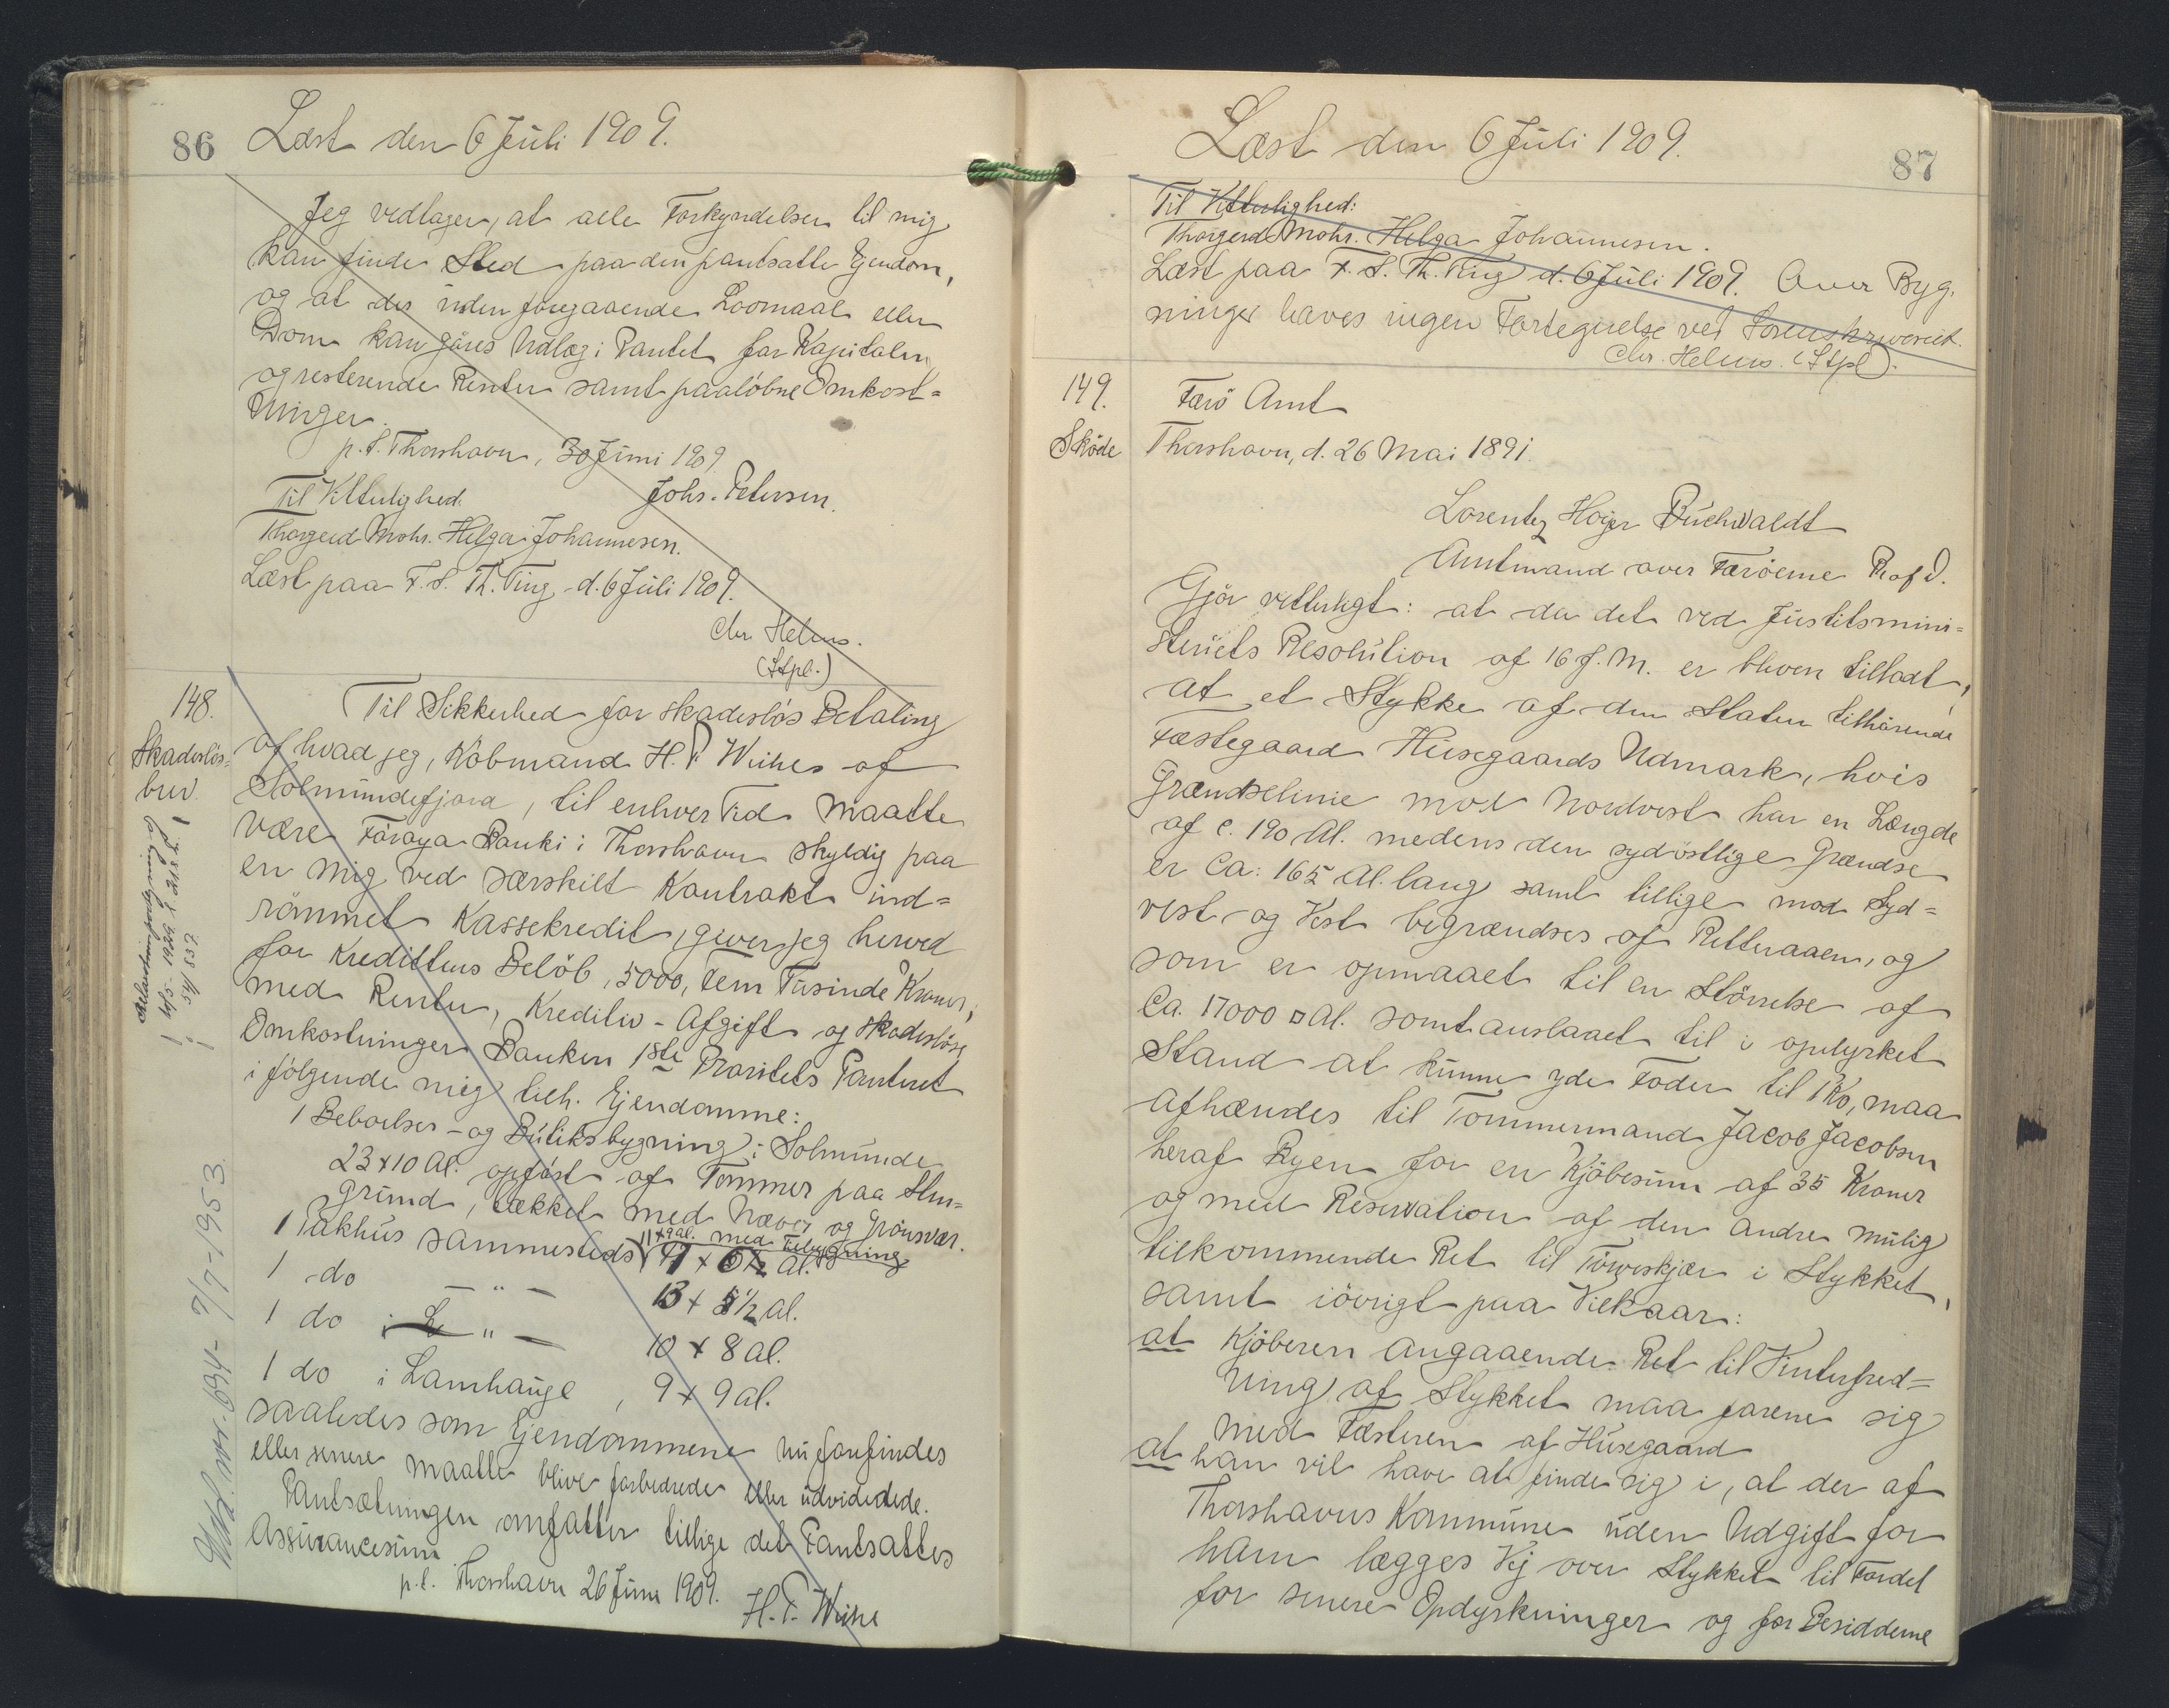 86 Læst den 6 Juli 1909.
Jeg vedtager, at alle Forkyndelser til mig
kan finde Sted paa den pantsatte Ejendom,
og at der uden foregaaende Lovmaal eller
Dom kan göres Udlæg i Pantet for Kapitalen,
og resterende Renter samt paalöbne Omkost=
ninger.
p.t. Thorshavn, 30 Juni 1909
Johs. Petersen.
Til Vitterlighed.
Thorgerd Mohr. Helga Johannesen.
Læst paa F. S. Th. Ting d. 6 Juli 1909.
Chr Helms.
(Stpl.)
148.
Skadeslös=
brev.
Til Sikkerhed for skadeslös Betaling
af hvad jeg, Köbmand H. P. Weihes af
Solmundefjord, til enhver Tid maatte
være Föroya Banki i Thorshavn skyldig paa
en mig ved særskilt Kontrakt ind=
römmet Kassekredit, giver jeg herved
for Kredittens Belöb, 5000, Fem Tusinde Kroner,
med Renter, Kreditiv-Afgift og skadeslöse
Omkostninger Banken 1ste Prioritets Panteret
i fölgende mig tilh. Ejendomme:
1 Beboelses- og Butiksbygning i Solmunde
23 x 10 Al. opfört af Tömmer paa Sten=
grund, tækket med Næver og Grönsvær.
11 x 9 al. med Tilbygning
1 Pakhus sammesteds 7 x 6½ Al.
1 do — " — 13 x 5½ Al.
1 do — " — 10 x 8 Al.
1 do i Lamhauge, 9 x 9 Al.
saaledes som Ejendommene nu forefindes
eller senere maatte blive forbedrede eller udvidedede.
Pantsætningen omfatter tillige det Pantsattes
Assurancesum.
p.t. Thorshavn 26 Juni 1909.
H. P. Weihe
Udsl. nr. 694 - 7/7-1953.
Læst den 6 Juli 1909. 87
Til Vitterlighed:
Thorgerd Mohr. Helga Johannesen.
Læst paa F. S. Th. Ting d. 6 Juli 1909. Over Byg.
ninger haves ingen Fortegnelse ved Sorenskriveriet.
Chr. Helms. (Stpl).
149.
Sköde
Færö Amt
Thorshavn, d. 26 Mai 1891.
Lorentz Höyer Buchwaldt
Amtmand over Færöerne R. af D.
Gjör vitterligt: at da det ved Justitsmini=
steriets Resolution af 16 f. M. er bleven tilladt,
at et Stykke af den Staten tilhörende
Fæstegaard Husegaards Udmark, hvis
Grændselinie mod Nordvest har en Længde
af c. 190 Al. medens den sydöstlige Grændse
er Ca: 165 Al. lang samt tillige mod Syd=
vest og Vest begrændses af Retteraaen, og
som er opmaalt til en Störrelse af
Ca. 17000 □ Al. samt anslaaet til i opdyrket
Stand at kunne yde Foder til 1 Ko, maa
afhændes til Tömmermand Jacob Jacobsen
heraf Byen for en Kjöbesum af 35 Kroner
og med Reservation af den andre mulig
tilkommende Ret til Törveskjær i Stykket,
samt iövrigt paa Vilkaar:
at Kjöberen angaaende Ret til Vinterfred=
ning af Stykket maa forene sig
med Fæsteren af Husegaard
at han vil have at finde sig i, at der af
Thorshavns Kommune uden Udgift for
ham lægges Vej over Stykket til Fordel
for senere Opdyrkninger og for Besidderne